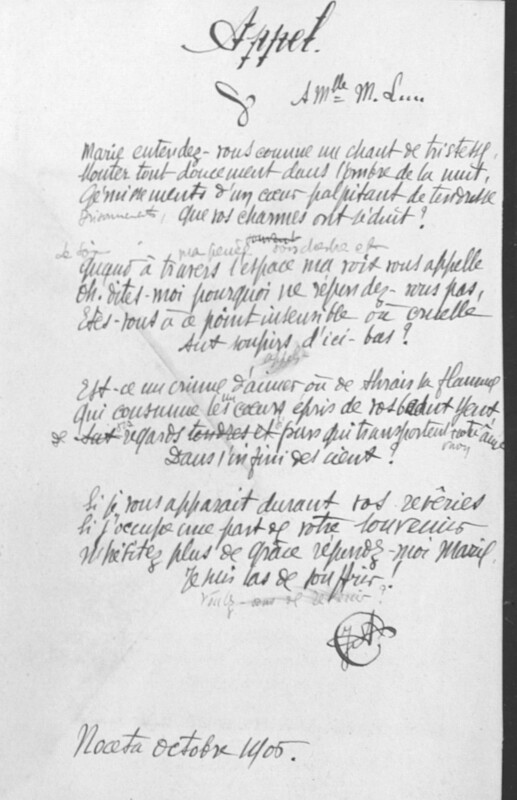 Appel.
A Mlle M. L...
Marie entendez-vous comme un chant de tristesse,
Monter tout doucement dans l'ombre de la nuit,
Gémissements d'un cœur palpitant de tendresse
que vos charmes ont séduit?
Le soir ma pensée souvent vous cherche et
quand à travers l'espace ma voix vous appelle
Oh. dites-moi pourquoi ne répondez-vous pas,
Etes-vous à ce point insensible ou cruelle
Aux soupirs d'ici-bas?
Est-ce un crime d'aimer ou de la flamme
qui consume un cœur épris de vos yeux
de vos regards tendres et purs qui transportent votre âme
Dans l'infini des cieux?
Si je vous apparait durant vos revêries
Si j'occupe une part de votre souvenir
N'hésitez plus de grâce répondez-moi Marie,
Je suis las de souffrir!
J.A.
Noceta octobre 1906.